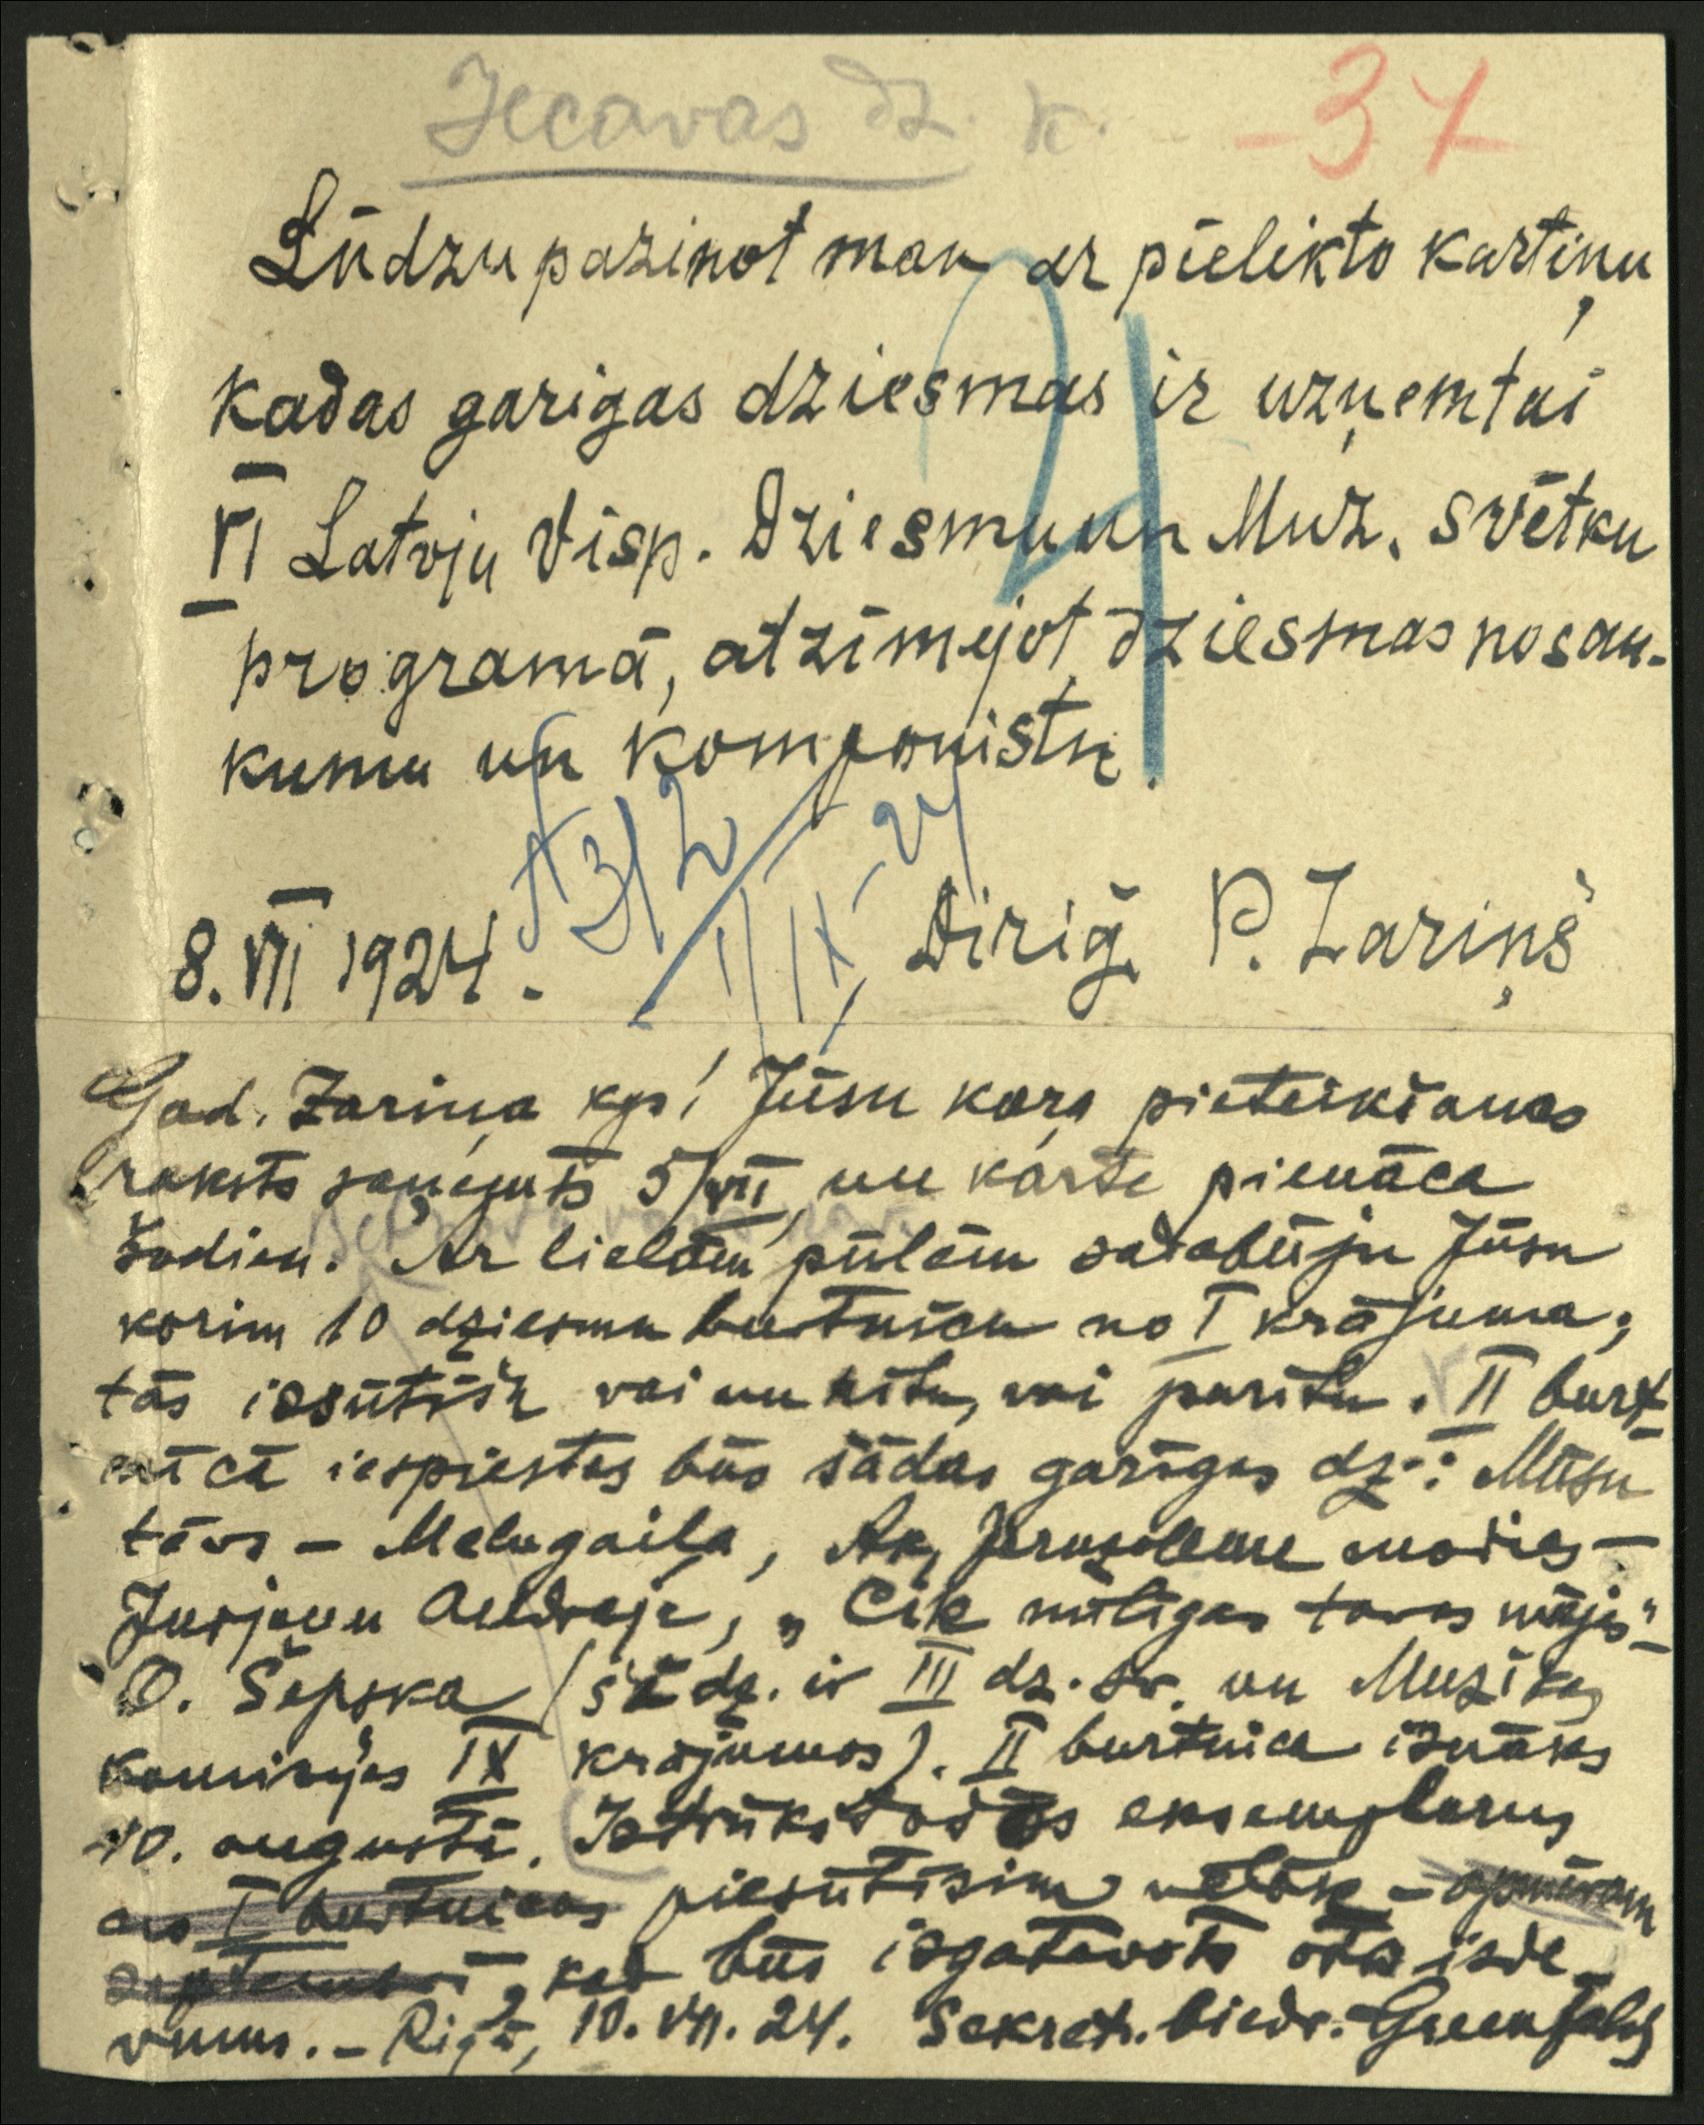 Iecavas dz. k. -37
Lūdzu paziņot man ar pielikto kartiņu
kadas garigas dziesmas ir uzņemtas
VI Latvju Visp. Dziesmu un Muz. svētku
programā, atzīmejot dziesmas nosau-
kumu un komponistu.
312
1/IX 24
8. VII 1924. Diriģ. P. Zariņš
God. Zariņa kgs! Jūsu kora pieteikšanas
raksts saņemts 5/VII, un karte pienāca
šodien. Ar lielām pūlēm sadabūju Jūsu
korim 10 dziesmu burtnīcu no I krājuma;
tās izsūtīšu vai nu rītu, vai parītu. II burt-
nīcā iespiestas būs šādas garīgas dz.: Mūsu
tēvs – Melngaiļa, Ak, Jeruzāleme modies –
Jurjānu Andreja, „Cik mīligas tavas mājas" –
O. Šepska (šī dz. ir III dz. sv. un Muzikas
komisijas IX krājumos). II burtnica iznāks
10. augustā. Iztrūkstošos eksemplarus
no I burtnicas piesūtīsim vēlāk – apmēram
septembrī, kad būs izgatavots otrs izde-
vums. – Rigā, 10. VII. 24. Sekret. biedr.